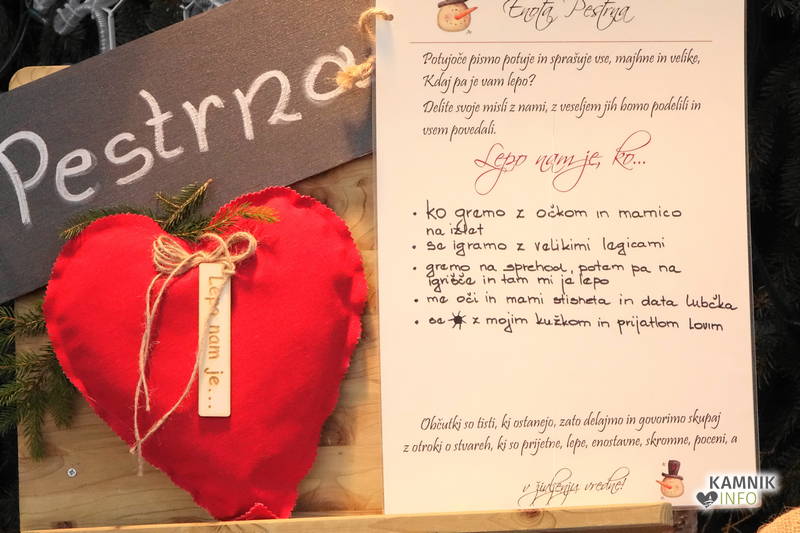 Enota Pestrna
Pestrna
Potujoče pismo potuje in sprašuje vse, majhne in velike,
Kdaj pa je vam lepo?
Delite svoje misli z nami, z veseljem jih bomo podelili in
vsem povedali.
Lepo nam je, ko...
• ko gremo z očkom in mamico
na izlet
• se igramo z velikimi legicami
• gremo na sprehod, potem pa na
igrišče in tam mi je lepo
• me oči in mami stisneta in data lubčka
• se z mojim kužkom in prijatlom lovim
Lepo nam je...
Občutki so tisti, ki ostanejo, zato delajmo in govorimo skupaj
z otroki o stvareh, ki so prijetne, lepe, enostavne, skromne, poceni, a
v življenju vredne!
KAMNIK
INFO